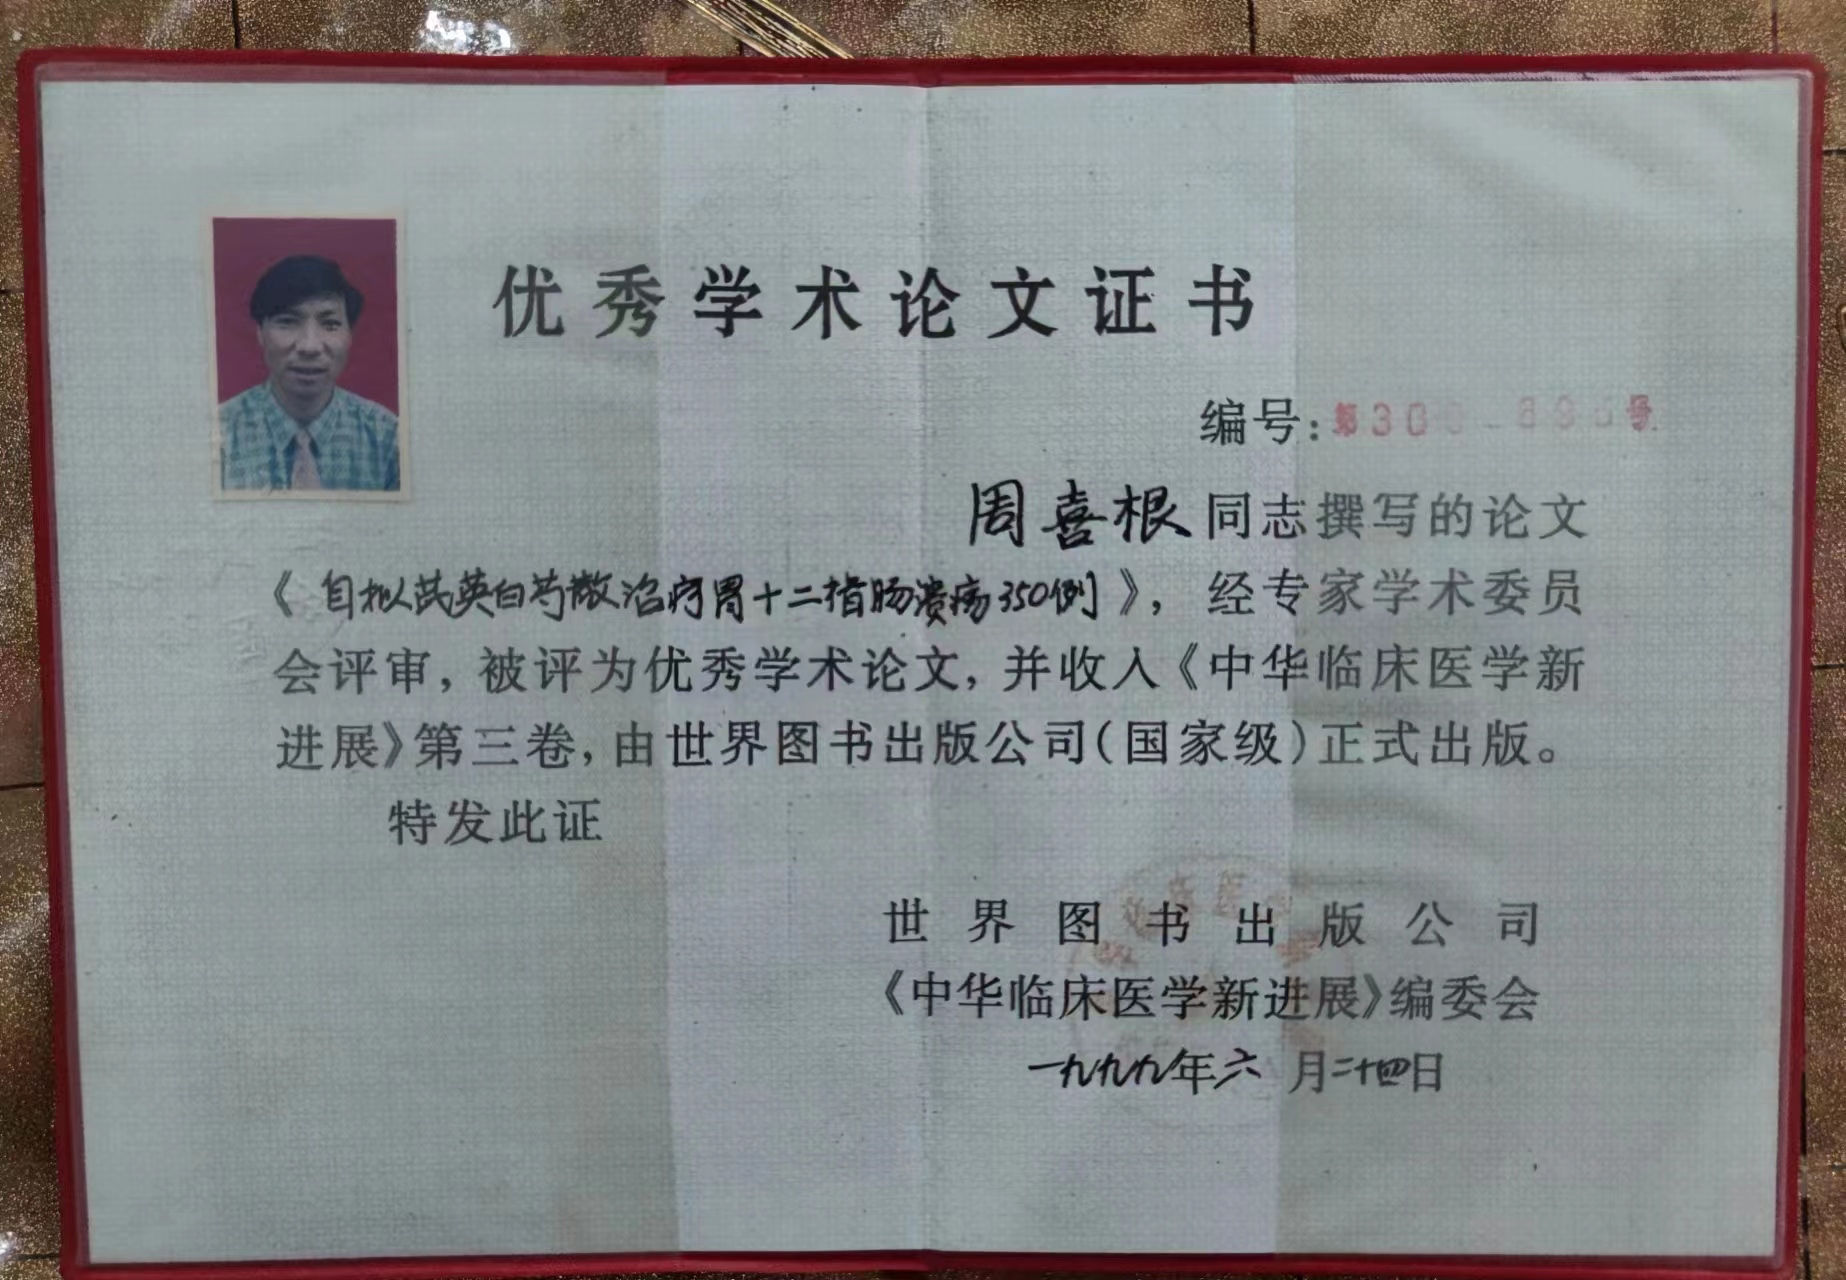 优秀学术论文证书
编号:第300-
周喜根同志撰写的论文
《自拟芪英白芍散治疗胃十二指肠溃疡350例》，经专家学术委员
会评审，被评为优秀学术论文，并收入《中华临床医学新
进展》第三卷，由世界图书出版公司(国家级)正式出版。
特发此证
世界图书出版公司
《中华临床医学新进展》编委会
一九九九年六月二十四日